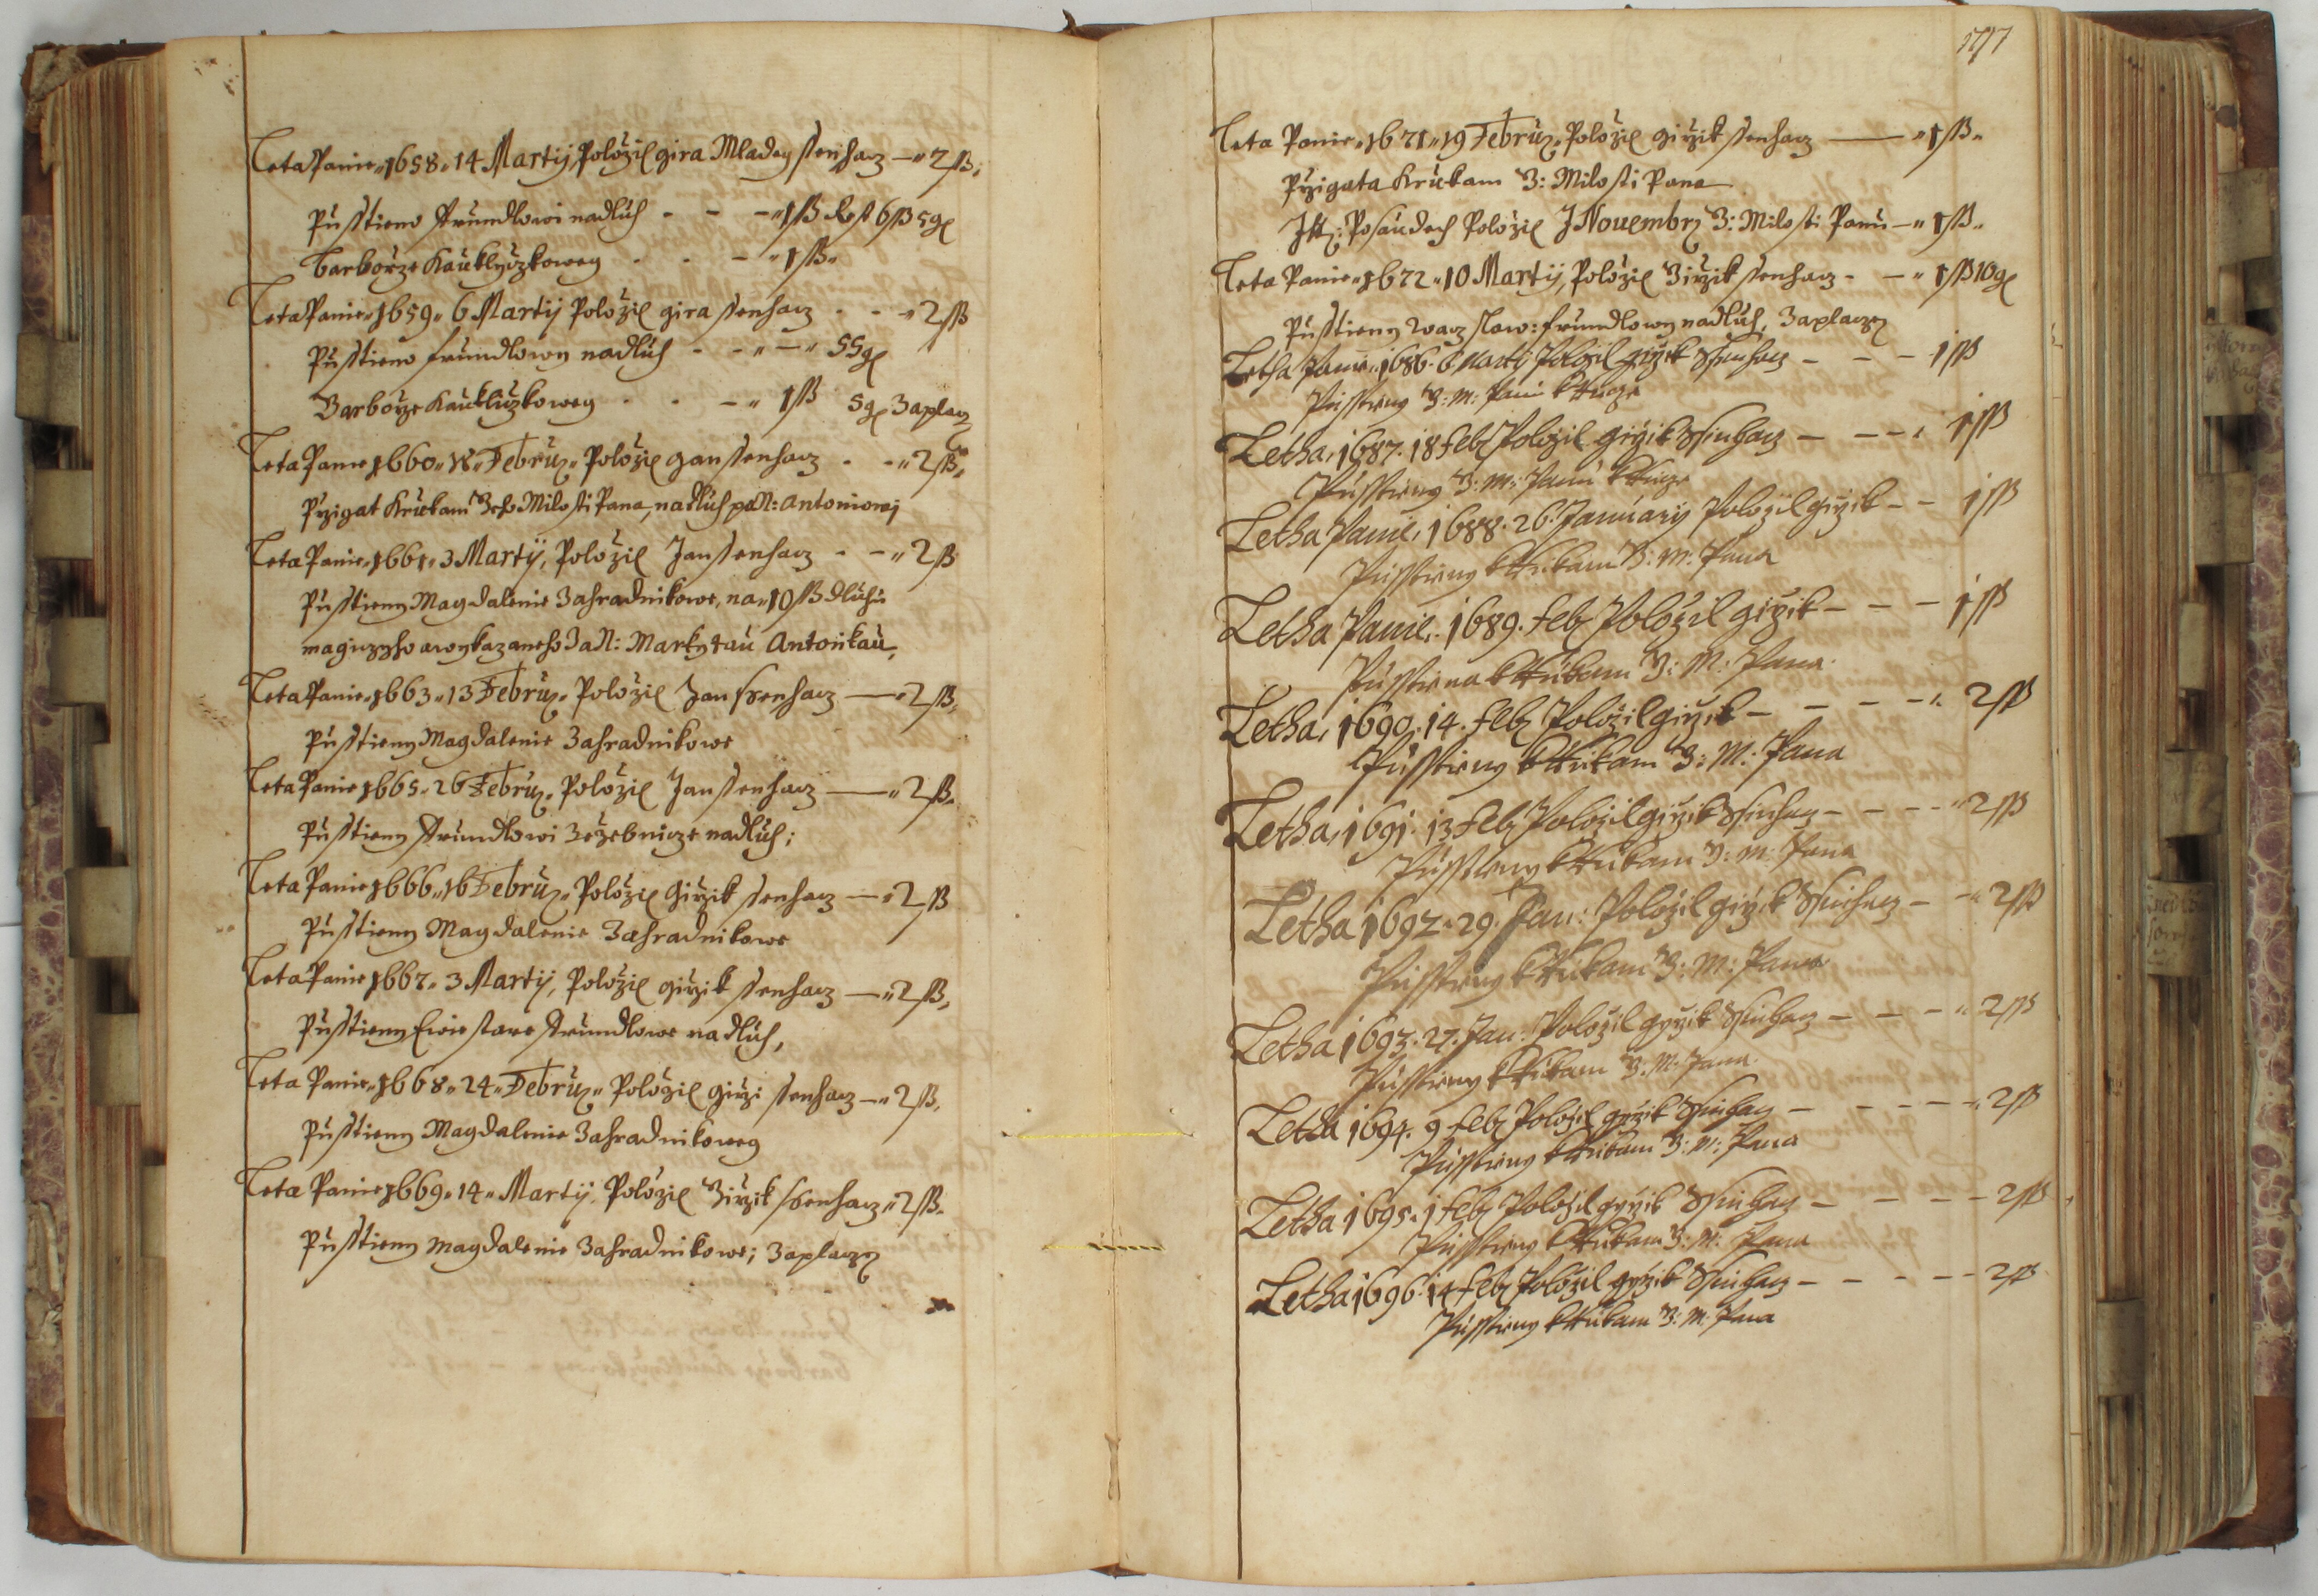 Leta Panie 1658 14 Martij Položil gira Mladeg ssenharz — 2 ß
Pusstieno ffrundlowi nadluh - - — 1 ß Rest 6 ß 5 g
Barborze Kauklyczkoweg - - — 1 ß
Leta Panie 1659 6 Martij Položil gira ssenharz - - 2 ß
Pusstieno frundlowy nadluh - - — 55 g
Barborze Kaukliczkoweg - - — 1 ß 5 g Zaplacz
Leta Panie 1660 Februz Položil Jan ssenharz - - 2 ß
Przigat k rukam Jeho Milosti Pana, nadluh po N: Antoniowi
Leta Panie 1661 3 Martij, Položil Jan ssenharz - - 2 ß
Pusstieny Magdalenie Zahradnikowe, na 10 ß dluhu
magiczyho a wykazaneho Za N: Markytau Antonikau
Leta Panie 1663 13 Februz Položil Jan ssenharz — 2 ß
Pusstieny Magdalenie Zahradnikowe
Leta Panie 1665 26 Februz Položil Jan ssenharz — 2 ß
Pusstieny ffrundlowi Zržebnicze nadluh;
Leta Panie 1666 16 Februz Položil Giržik ssenharz — 2 ß
Pusstieny Magdalenie Zahradnikowe
Leta Panie 1667 3 Martij, Položil giržik ssenharz — 2 ß
Pusstieny Ewie stare ffrundlowe nadluh,
Leta Panie 1668 24 Februz Položil girzi ssenharz — 2 ß
Pusstieny Magdalenie Zahradnikoweg
Leta Panie 1669 14 Martij, Položil Jiržik ssenharz 2 ß
Pusstieny Magdalenie Zahradnikowe; Zaplacze
Leta Panie 1671 19 Februz Položil giržik ssenharz — 1 ß
Przigata k rukam J: Milosti Pana
Itt: Posaudech Položil J Nouembrz J: Milosti Panu — 1 ß
Leta Panie 1672 10 Martij, Položil Jiržik ssenharz - — 1 ß 10 g
Pusstieny Waczslaw: frundlowy nadluh, Zaplacze
Letha Panie 1686. 6 Marty Položil giržik Ssenharz - - - 1 ß
Pusstieny J: M: Panu k Rucze
Letha, 1687. 18 Feb Položil giržik Ssenharz - - - 1 ß
Pusstieny J: M: Panu k Rucze
Letha Panie, 1688. 26. January Položil giržik - - 1 ß
Pusstieny k Rukam J: M: Pana
Letha Panie, 1689. Feb Položil giržik - - - 1 ß
Pusstiena k Rukam J: M: Pana
Letha, 1690. 14. Feb Položil giržik - - - - 2 ß
Pusstieny k Rukam J: M: Pana
Letha, 1691. 13 Feb Položil giržik Ssenharz - - - - 2 ß
Pusstieny k Rukam J: M: Pana
Letha 1692. 29. Jan: Položil giržik Ssenharz - - 2 ß
Pusstieny k Rukam J: M: Pana
Letha 1693. 27. Jan: Položil gyržik Ssenharz - - - 2 ß
Pusstieny k Rukam J: M: Pana
Letha 1694. 9 Feb Položil gyržik Ssenharz - - - - 2 ß
Pusstieny k Rukam J: M: Pana
Letha 1695. 1 Feb Položil gyržik Ssenharz - - - - 2 ß
Pusstieny k Rukam J: M: Pana
Letha 1696. 14 Feb Položil gyržik Ssenharz - - - - 2 ß
Pusstieny k Rukam J: M: Pana